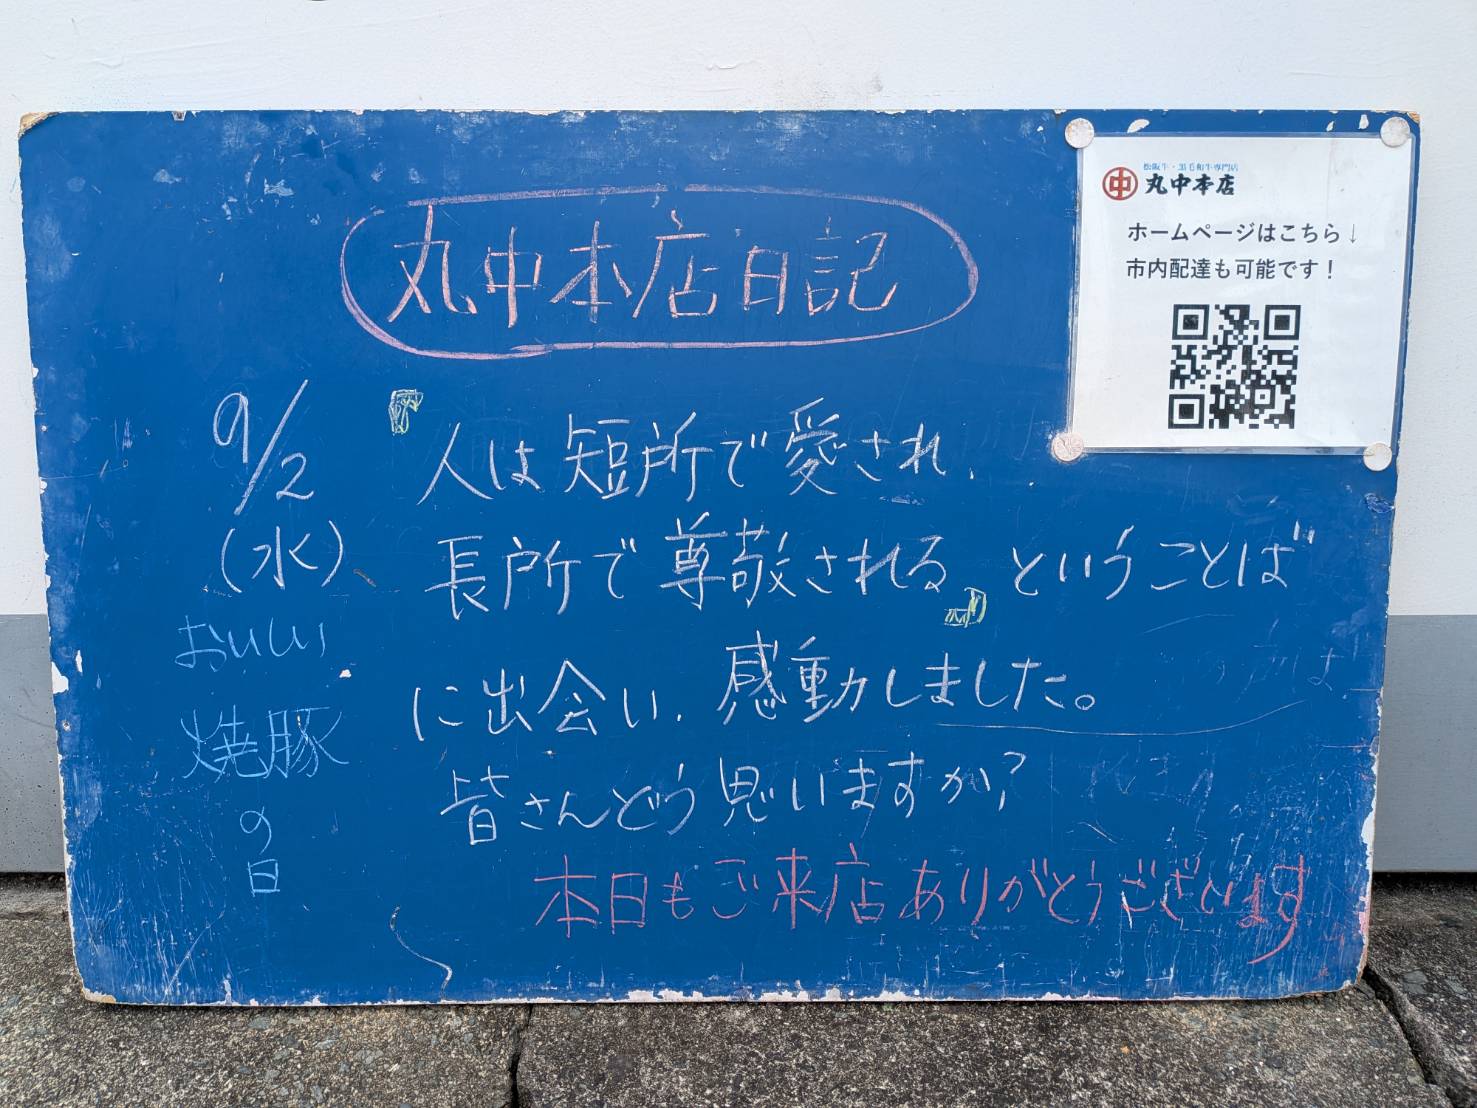 丸中本店日記
松阪牛・黒毛和牛専門店
中 丸中本店
ホームページはこちら↓
市内配達も可能です！
9/2
(水)
おいしい
焼豚
の
日
『人は短所で愛され、
長所で尊敬される』ということば
に出会い、感動しました。
皆さんどう思いますか？
本日もご来店ありがとうございます